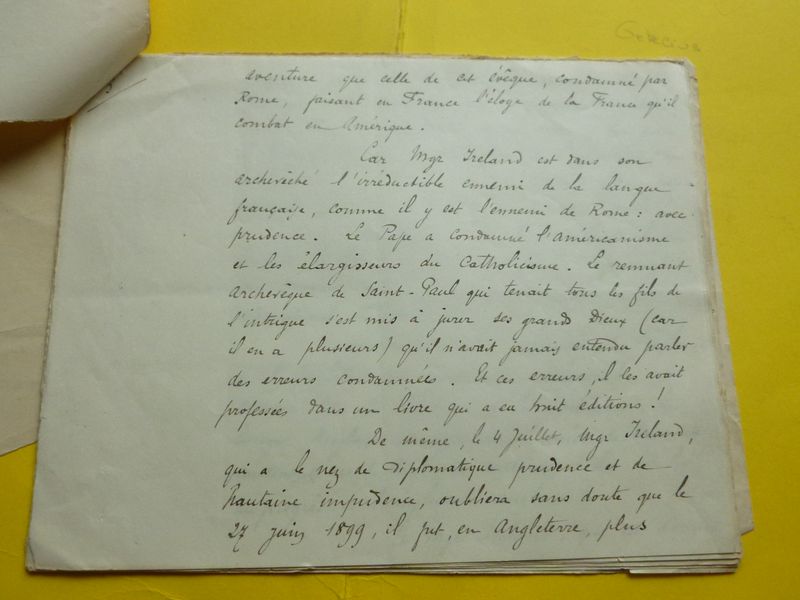 aventure que celle de cet évêque, condamné par
Rome, faisant en France l'éloge de la France qu'il
combat en Amérique.
Car Mgr Ireland est dans son
archevêché l'irréductible ennemi de la langue
française, comme il y est l'ennemi de Rome : avec
prudence. Le Pape a condamné l'américanisme
et les élargisseurs du Catholicisme. Le remuant
archevêque de Saint-Paul qui tenait tous les fils de
l'intrigue s'est mis à jurer ses grands Dieux (car
il en a plusieurs) qu'il n'avait jamais entendu parler
des erreurs condamnées. Et ces erreurs, il les avait
professées dans un livre qui a eu huit éditions !
De même, le 4 Juillet, Mgr Ireland,
qui a le nez de diplomatique prudence et de
hautaine impudence, oubliera sans doute que le
27 juin 1899, il fut, en Angleterre, plus